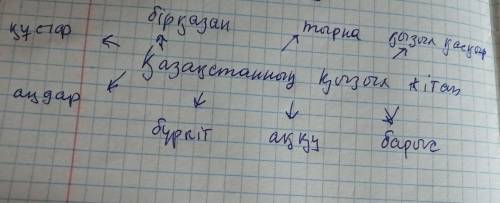 құстар бірқазан тырна қызыл қасқыр
Қазақстанның қызыл кітап
аңдар
бүркіт аққу барыс